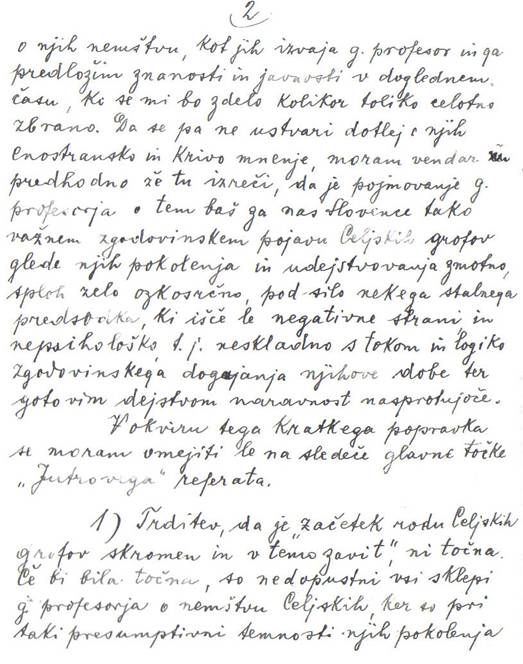 2
o njih nemštvu, kot jih izvaja g. profesor in ga
predložim znanosti in javnosti v doglednem
času, ko se mi bo zdelo kolikor toliko celotno
zbrano. Da se pa ne ustvari dotlej o njih
enostransko in krivo mnenje, moram vendar
predhodno že tu izreči, da je pojmovanje g.
profesorja o tem baš za nas Slovence tako
važnem zgodovinskem pojavu Celjskih grofov
glede njih pokolenja in udejstvovanja zmotno,
sploh zelo ozkosrčno, pod silo nekega stalnega
predsodka, ki išče le negativne strani in
nepsihološko, t. j. neskladno s tokom in logiko
zgodovinskega dogajanja njihove dobe ter
gotovim dejstvom naravnost nasprotujoče.
V okviru tega kratkega popravka
se moram omejiti le na sledeče glavne točke
„Jutrovega" referata.
1) Trditev, da je „začetek rodu Celjskih
grofov skromen in v temo zavit", ni točna.
Če bi bila točna, so nedopustni vsi sklepi
g. profesorja o nemštvu Celjskih, ker so pri
taki presumptivni temnosti njih pokolenja